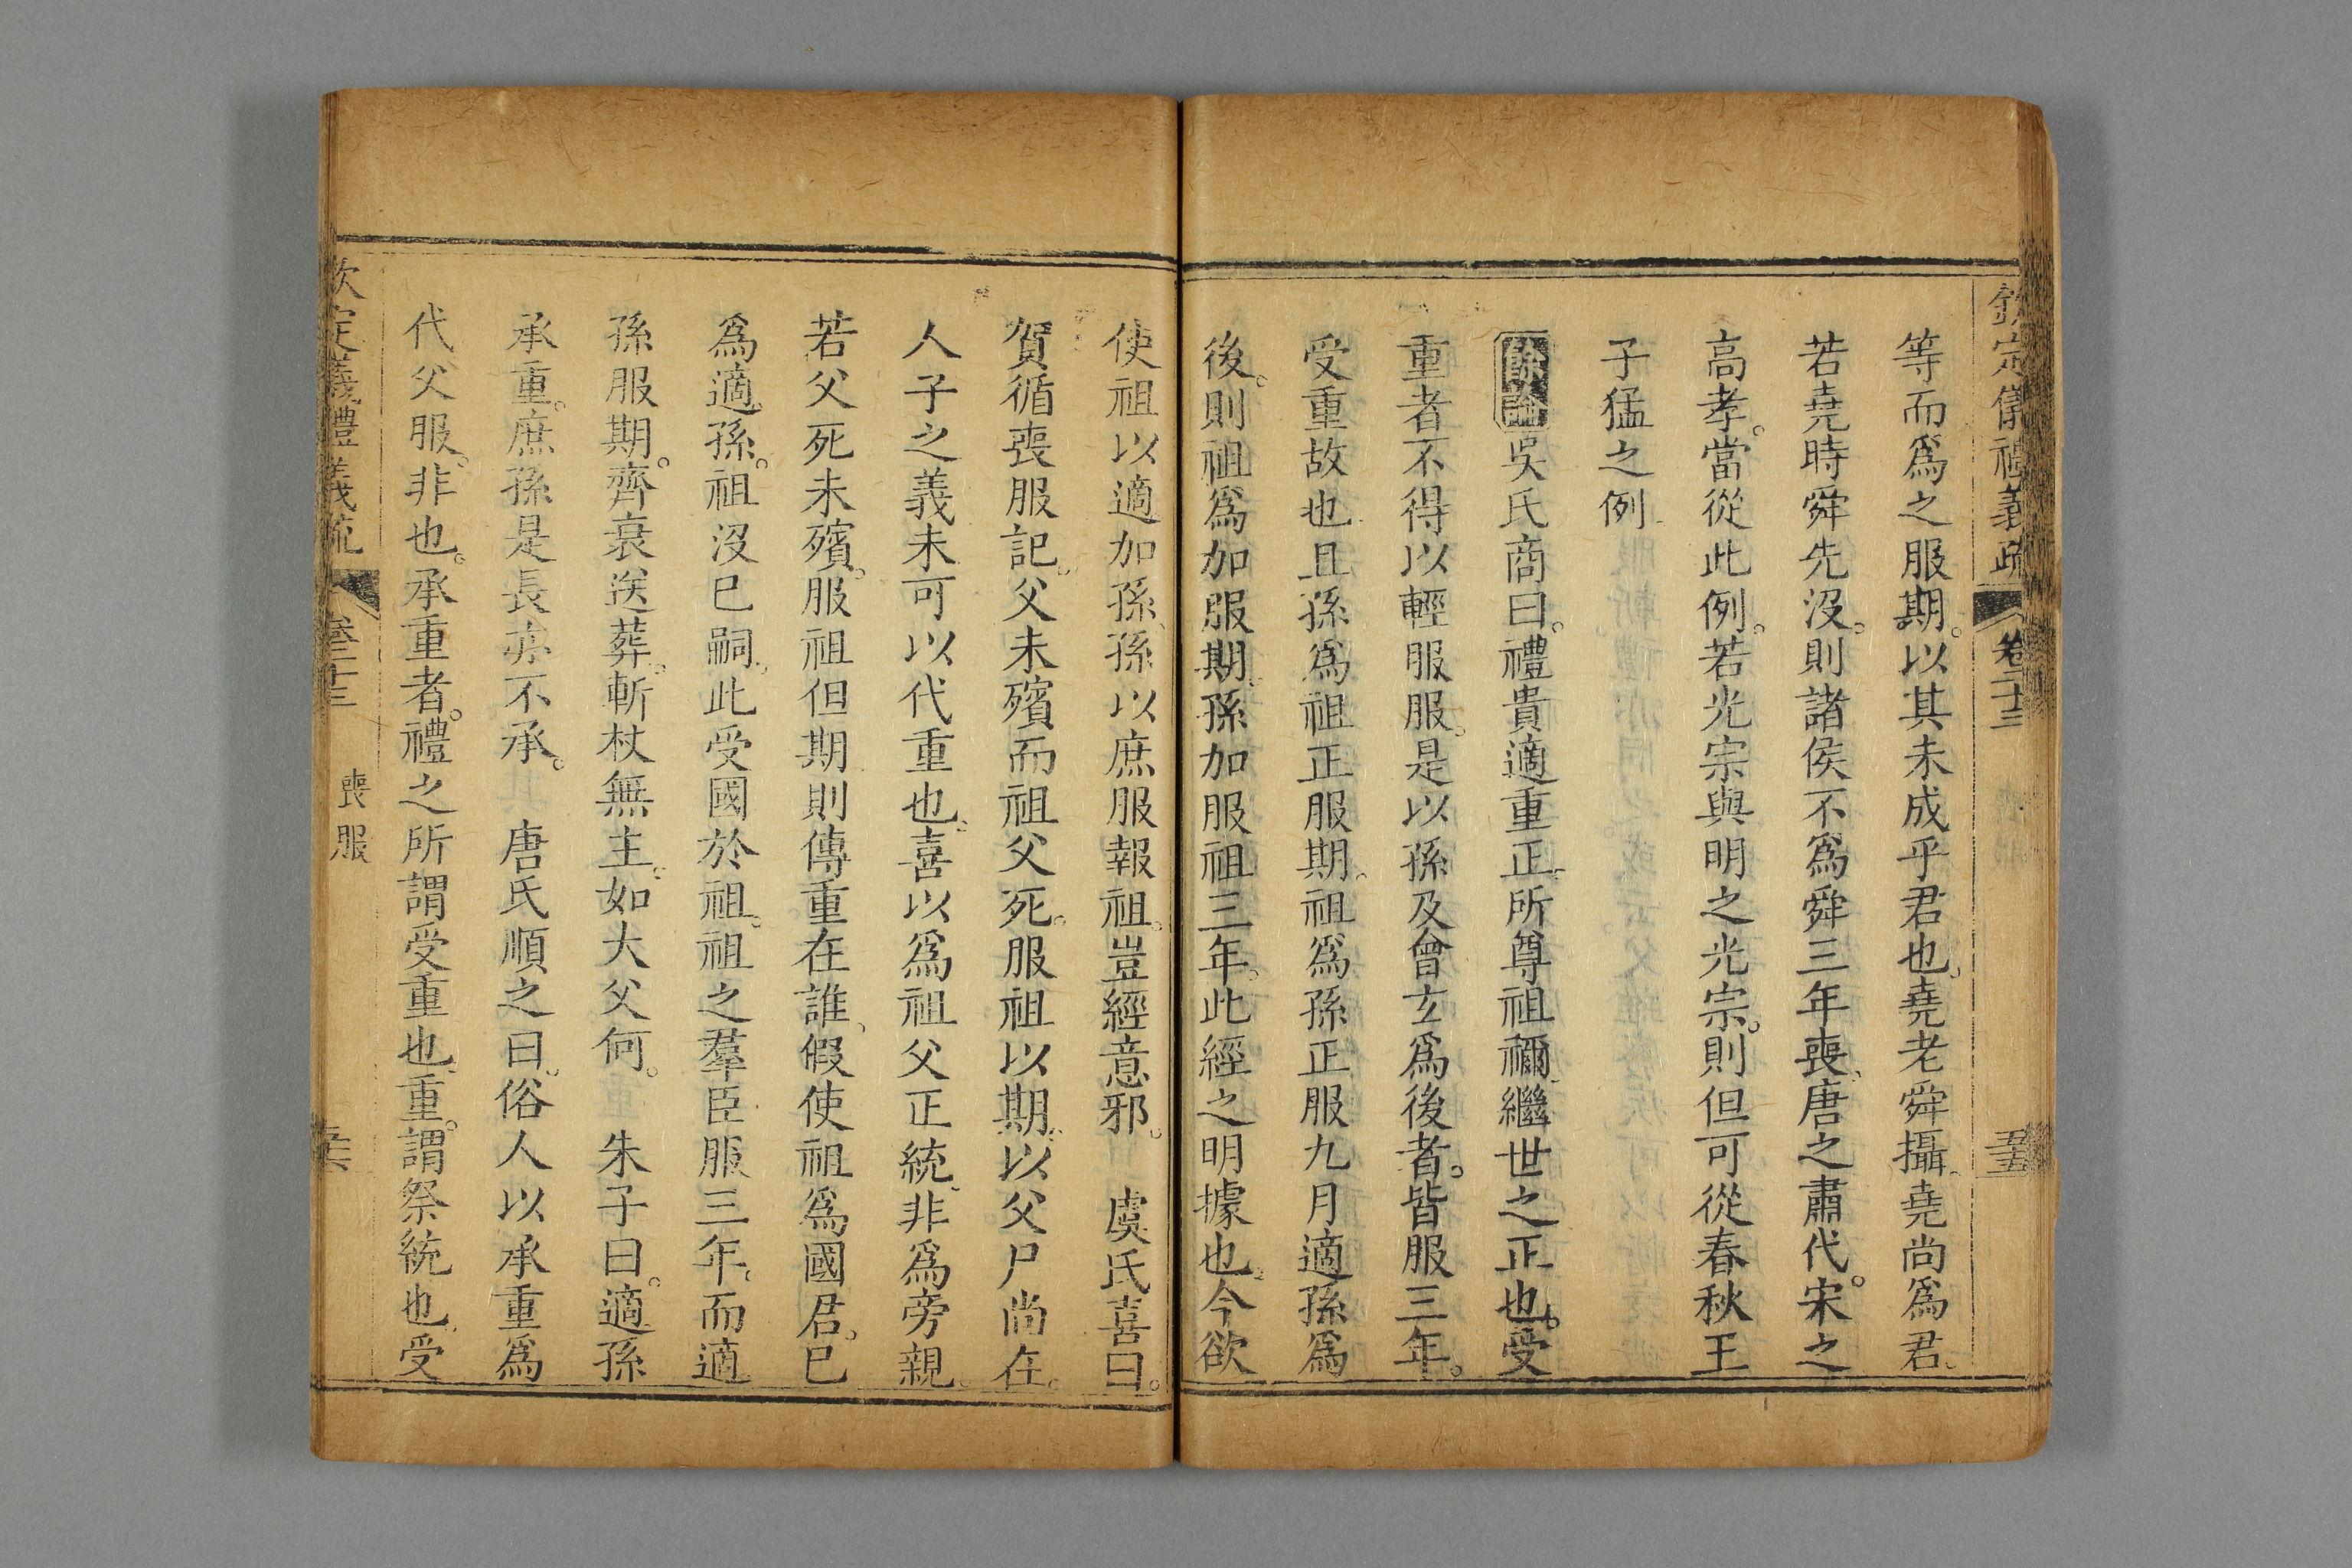 欽定儀禮義疏 卷二十三 五十五
等而爲之服期。以其未成乎君也。堯老舜攝。堯尚爲君。
若堯時舜先沒。則諸侯不爲舜三年喪。唐之肅代。宋之
高孝。當從此例。若光宗與明之光宗。則但可從春秋王
子猛之例
餘論吳氏商曰。禮貴適重正。所尊祖禰繼世之正也。受
重者不得以輕服服。是以孫及曾玄爲後者。皆服三年。
受重故也。且孫爲祖正服期。祖爲孫正服九月。適孫爲
後。則祖爲加服期。孫加服祖三年。此經之明據也。今欲
使祖以適加孫、孫以庶服報祖。豈經意邪。 虞氏喜曰。
賀循喪服記。父未殯而祖父死。服祖以期。以父尸尚在。
人子之義未可以代重也。喜以爲祖父正統、非爲旁親。
若父死未殯。服祖但期則傳重在誰、假使祖爲國君。已
爲適孫。祖沒已嗣。此受國於祖。祖之羣臣服三年。而適
孫服期。齊衰送葬。斬杖無主。如大父何。 朱子曰。適孫
承重。庶孫是長亦不承。 唐氏順之曰。俗人以承重爲
代父服。非也。承重者。禮之所謂受重也。重。謂祭統也。受
欽定義禮義疏 卷二十三 喪服 五十六